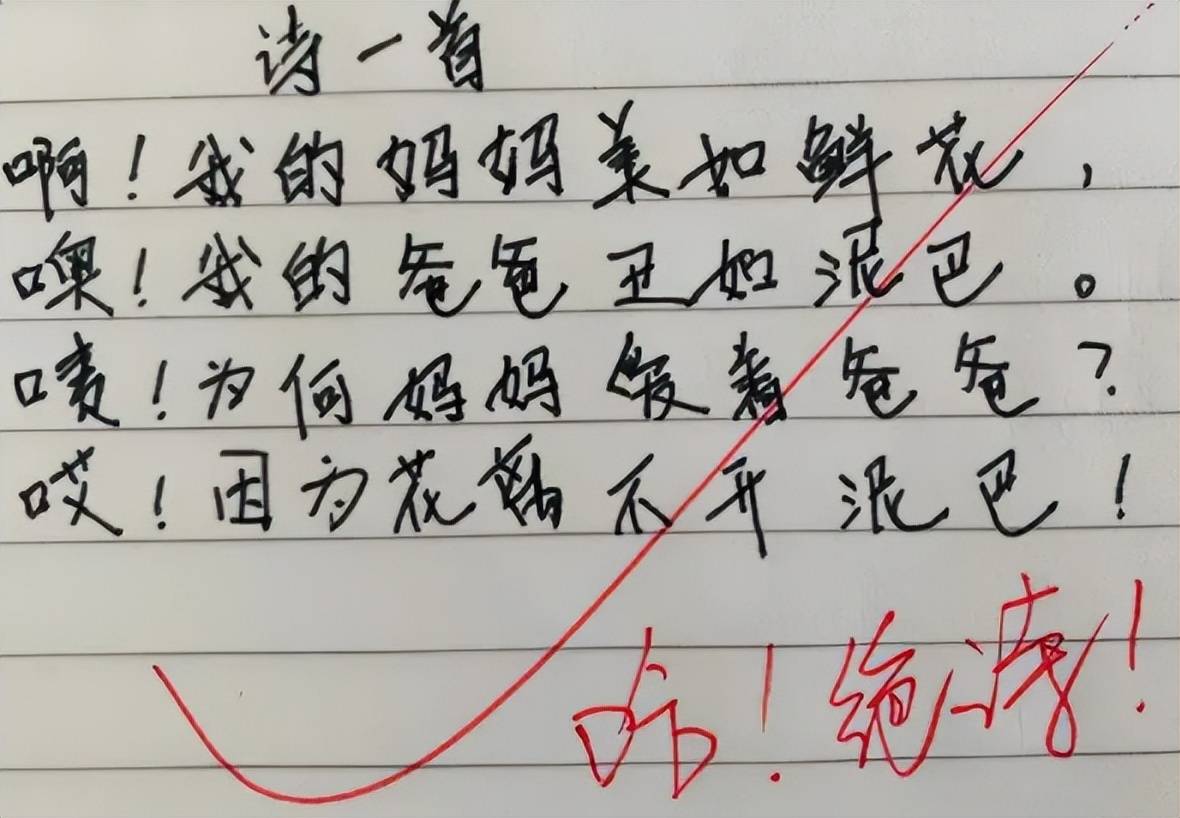 诗一首
啊！我的妈妈美如鲜花，
噢！我的爸爸丑如泥巴。
唛！为何妈妈爱着爸爸？
哎！因为花离不开泥巴！
哈！绝！